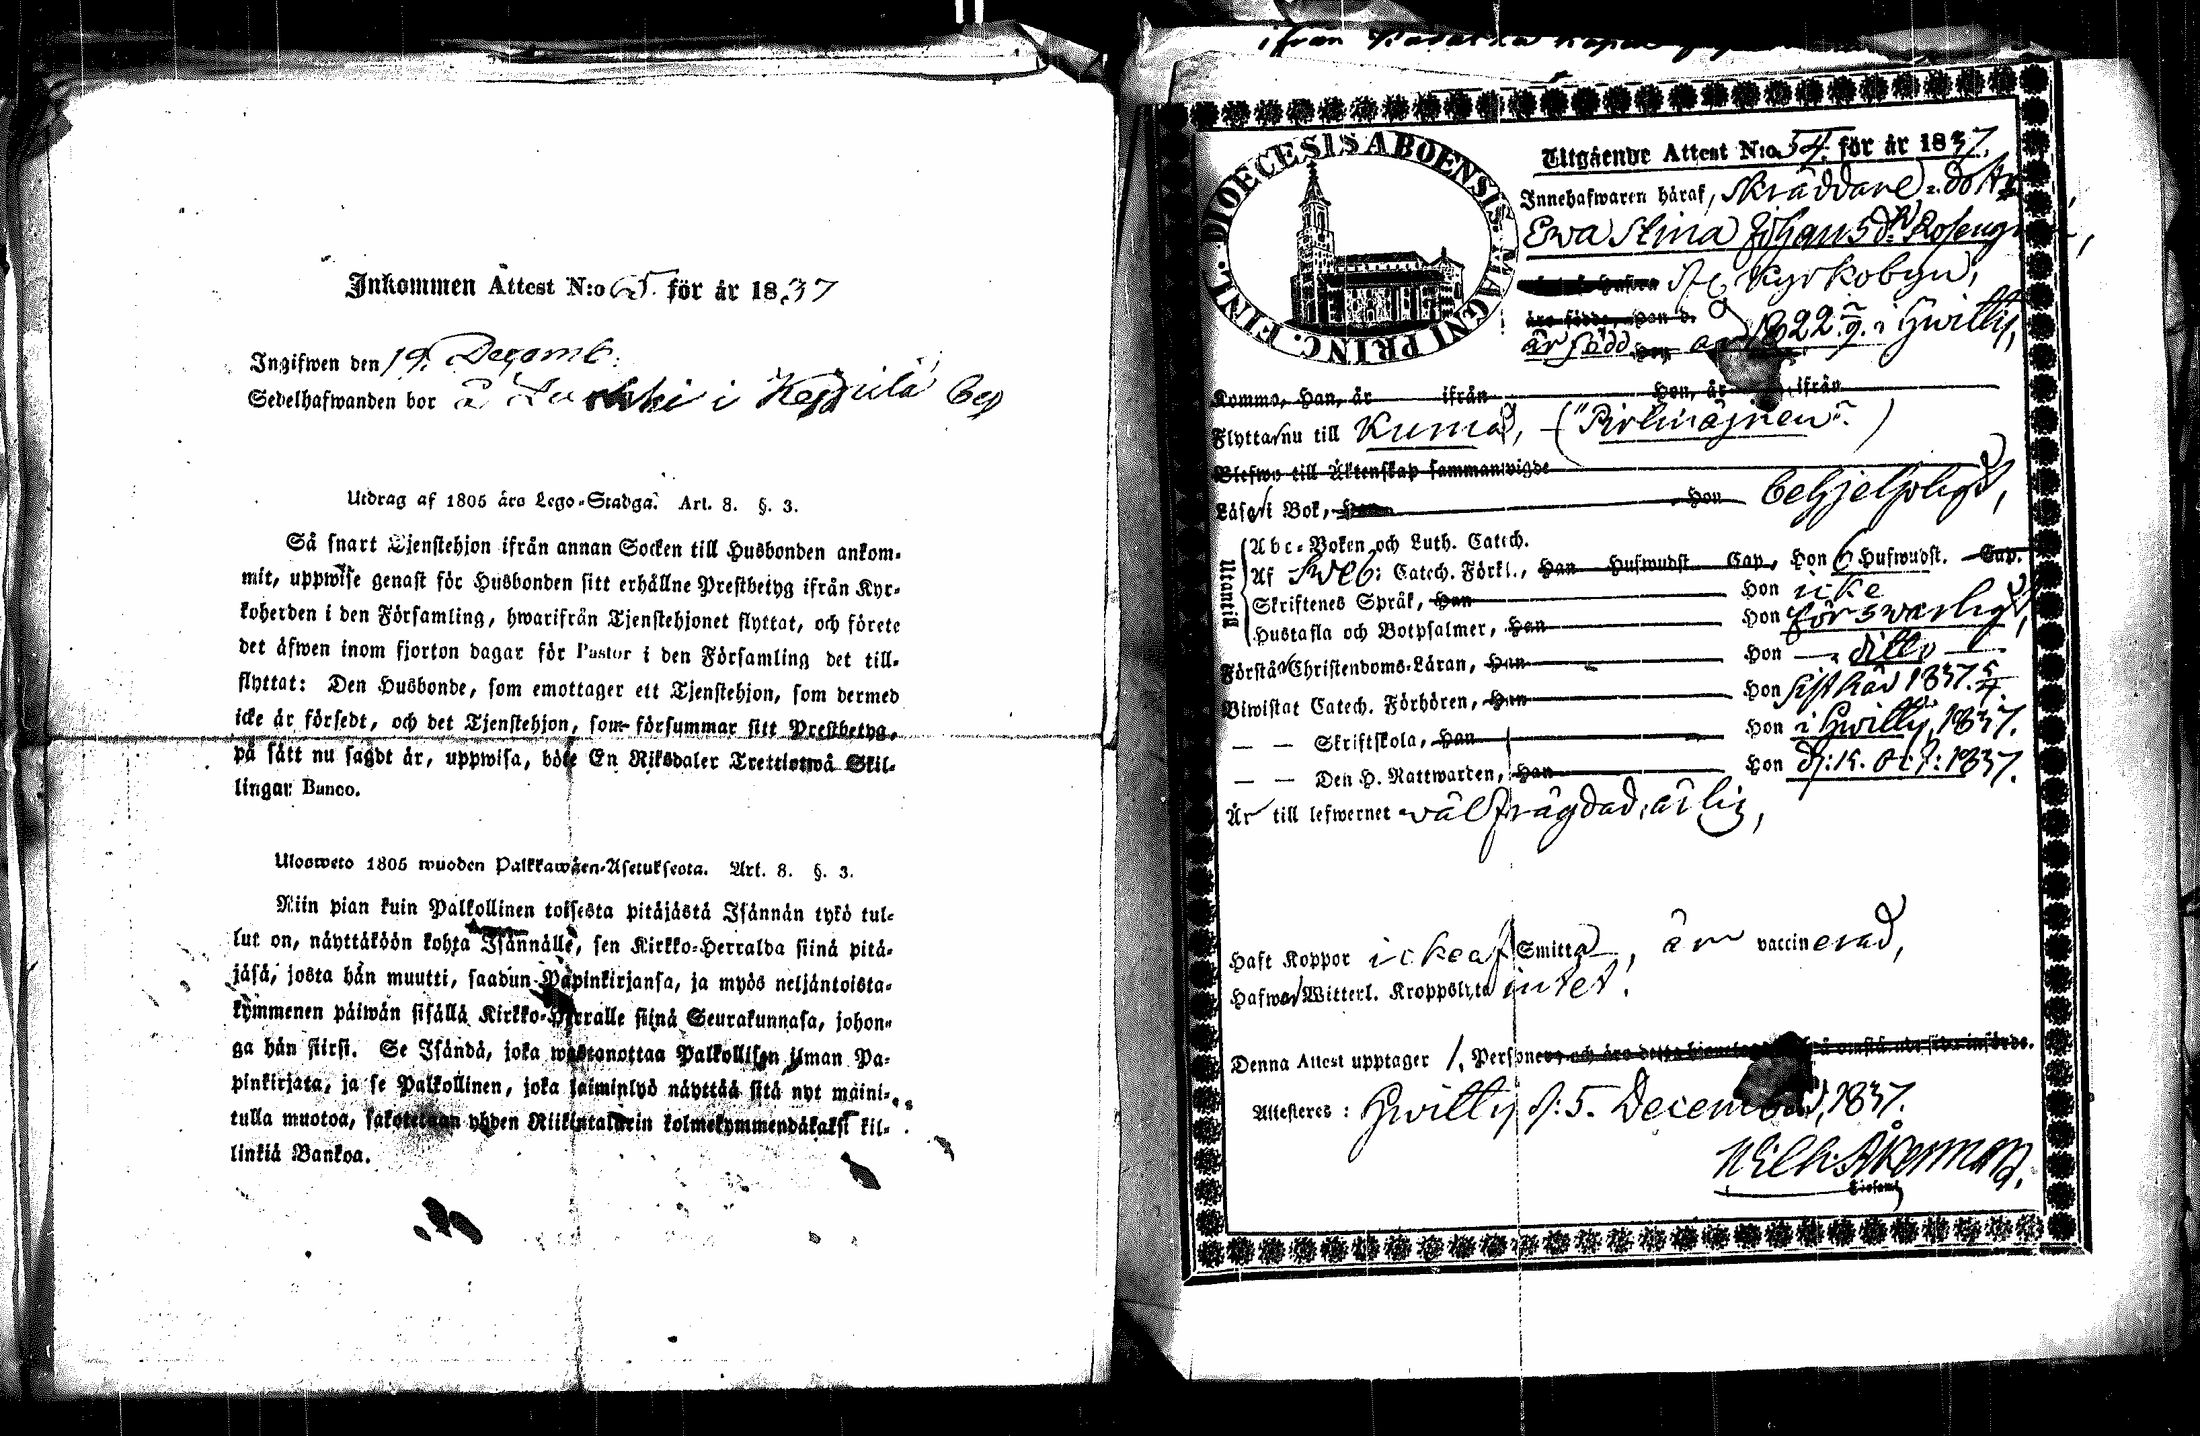 Inkommen Attest N:o 65. för år 1837
Ingifwen den 19. Decemb:
Sedelhafwanden bor å i Keppilä by
Utdrag af 1805 års Lego-Stadga. Art. 8. §. 3.
Så snart Tjenstehjon ifrån annan Socken till Husbonden ankom-
mit, uppwise genast för Husbonden sitt erhållne Prestbetyg ifrån Kyr-
koherden i den Församling, hwarifrån Tjenstehjonet flyttat, och förete
det äfwen inom fjorton dagar för Pastor i den Församling det till-
flyttat: Den Husbonde, som emottager ett Tjenstehjon, som dermed
icke är försedt, och det Tjenstehjon, som försummar sitt Prestbetyg,
på sätt nu sagdt är, uppwisa, böte En Riksdaler Trettiotwå Skil-
lingar Banco.
Ulosweto 1805 wuoden Palkkawäen-Asetuksesta. Art. 8. §. 3.
Niin pian kuin Palkollinen toisesta pitäjästä Isännän tykö tul-
lut on, näyttäköön kohta Isännälle, sen Kirkko-Herralda siinä pitä-
jäsä, josta hän muutti, saadun Papinkirjansa, ja myös neljäntoista-
kymmenen päiwän sisällä Kirkko-Herralle siinä Seurakunnasa, johon-
ga hän siirsi. Se Isändä, joka wastanottaa Palkollisen ilman Pa-
pinkirjata, ja se Palkollinen, joka laiminlyö näyttää sitä nyt maini-
tulla muotoa, sakotetaan yhden Riikintalarin kolmekymmendäkaksi kil-
linkiä Bankoa.
ifrån
DIOECESIS ABOENSIS MAGNI PRINC. FINL.
Utgående Attest N:o 54. för år 1837.
Innehafwaren häraf, Skräddare-dottr
Ewa Stina Johansdr Rosengr
Kyrkobyn,
äro födde, Han d.
är född 1822 i Hwittis,
Komma, Han, år ifrån Hon, år ifrån
Flyttar nu till Kumo, ("Pirlmäjnen")
Blefwo till Äktenskap sammanwigde
Läser i Bok, Han Hon behjelpligt,
Utantill
Abc-Boken och Luth. Catech.
Af Sweb: Catech. Förkl., Han Hufwudst. Cap., Hon 6 Hufwudst. Cap.
Skriftenes Språk, Han Hon icke
Hustafla och Botpsalmer, Han Hon förswarligt,
Förstår Christendoms-Läran, Han Hon ditto
Biwistat Catech. Förhören, Han Hon sisthåd 1837.
— — Skriftskola, Han Hon i Hwittis, 1837.
— — Den H. Nattwarden, Han Hon d: 15. Oct: 1837.
Är till lefwernet wälfrägdad, ärlig,
Haft Koppor icke af Smitta, är vaccinerad,
Hafwer Witterl. Kroppslyte intet.
Denna Attest upptager 1. Personer
Attesteres: Hwittis d: 5. December, 1837.
Wilh: Åkerman,